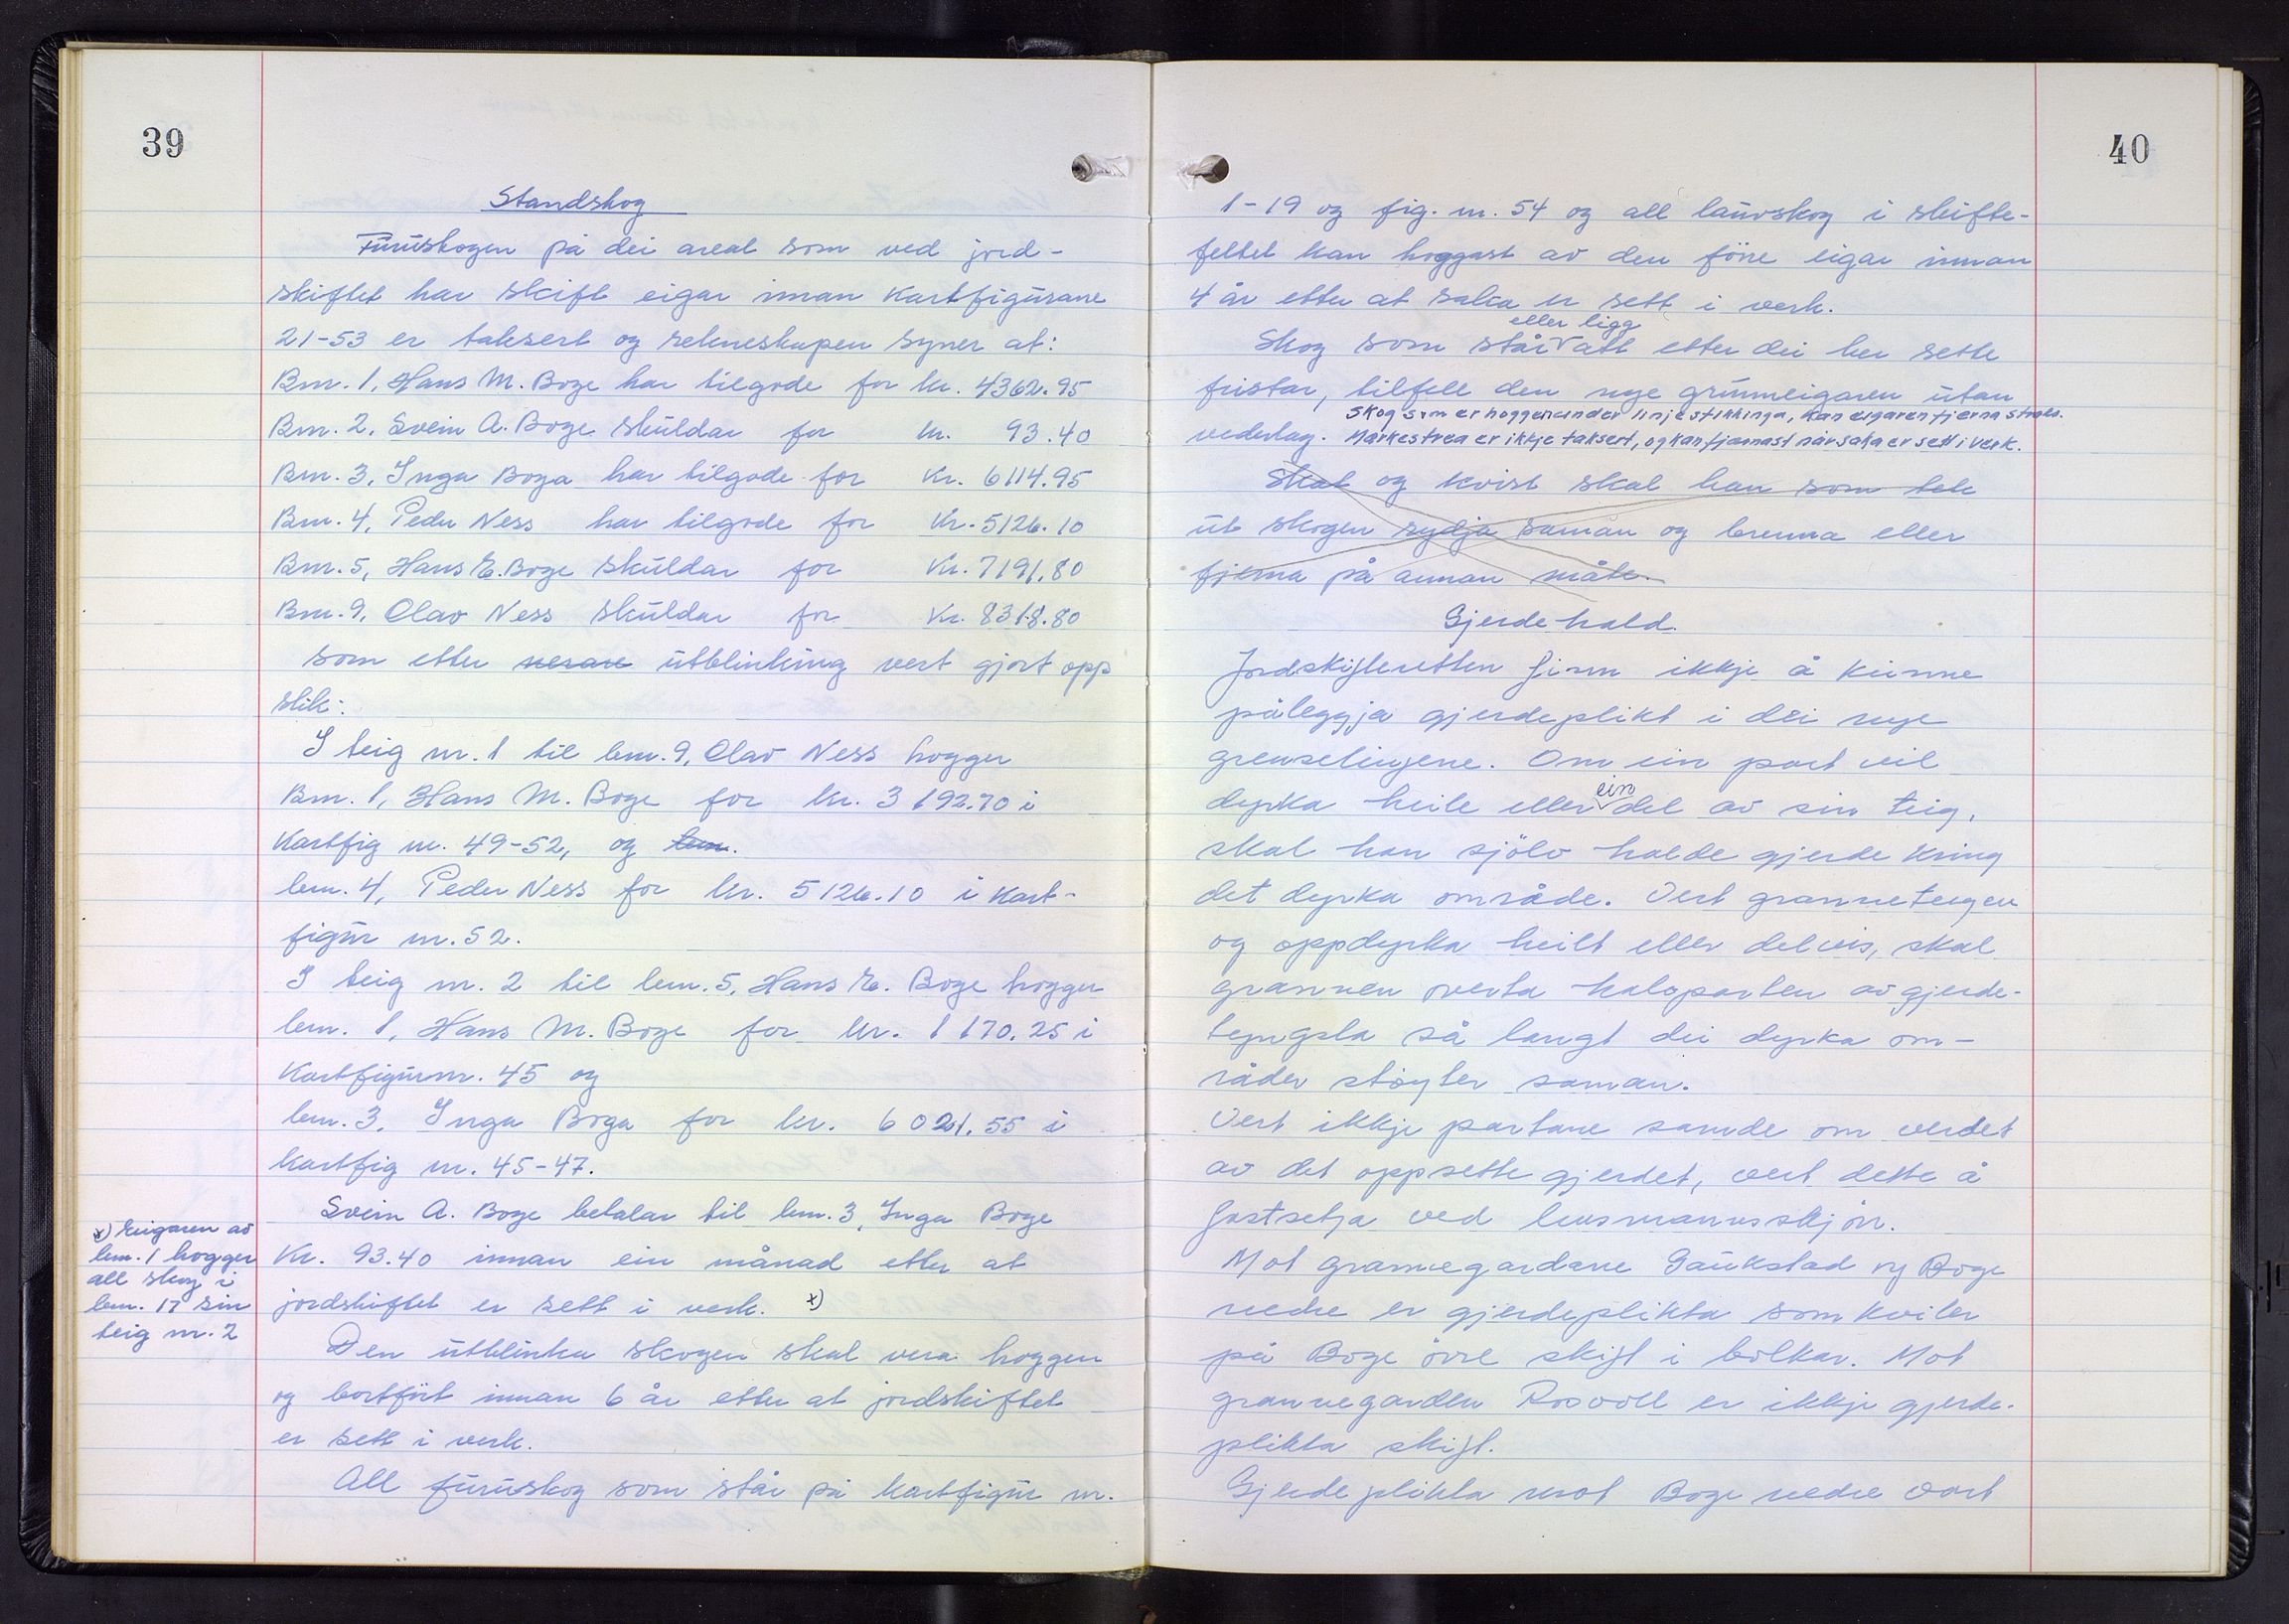 39
Standskog
Furuskogen på dei areal som ved jord-
skiftet har skift eigar innan kartfigurane
21-53 er taksert og rekneskapen syner at:
Bnr. 1, Hans M. Boge har tilgode for kr. 4362.95
Bnr. 2, Svein A. Boge skuldar for kr. 93.40
Bnr. 3, Inga Boga har tilgode for kr. 6114.95
Bnr. 4, Peder Ness har tilgode for kr. 5126.10
Bnr. 5, Hans E. Boge skuldar for kr. 7191.80
Bnr. 9, Olav Ness skuldar for kr. 8318.80
som etter utblinking vert gjort opp
slik:
I teig nr. 1 til bnr. 9, Olav Ness hogger
Bnr. 1, Hans M. Boge for kr. 3192.70 i
kartfig nr. 49-52, og bnr.
bnr. 4, Peder Ness for kr. 5126.10 i kart-
figur nr. 52.
I teig nr. 2 til bnr. 5, Hans E. Boge hogger
bnr. 1, Hans M. Boge for kr. 1170.25 i
kartfigur nr. 45 og
bnr. 3, Inga Boga for kr. 6021.55 i
kartfig nr. 45-47.
Svein A. Boge betalar til bnr. 3, Inga Boge
kr. 93.40 innan ein månad etter at
jordskiftet er sett i verk. x)
x) Eigaren av
bnr. 1 hogger
all skog i
bnr. 17 sin
teig nr. 2
Den utblinka skogen skal vera hoggen
og bortført innan 6 år etter at jordskiftet
er sett i verk.
All furuskog som står på kartfigur nr.
40
1-19 og fig. nr. 54 og all lauvskog i skifte-
feltet kan hoggast av den före eigar innan
4 år etter at saka er sett i verk.
eller ligg
Skog som står att etter dei her sette
fristar, tilfell den nye grunneigaren utan
Skog som er hoggen under linjestikkinga, kan eigaren fjerna straks.
vederlag. Markestrea er ikkje taksert, og kan fjernast når saka er sett i verk.
Skat og kvist skal han som tek
ut skogen rydja saman og brenna eller
fjerna på annan måte.
Gjerdehald.
Jordskifteretten finn ikkje å kunne
påleggja gjerdeplikt i dei nye
grenselinjene. Om ein part vil
ein
dyrka heile eller del av sin teig,
skal han sjölv halde gjerde kring
det dyrka område. Vert granneteigen
og oppdyrka heilt eller delvis, skal
grannen overta halvparten av gjerde-
tyngsla så langt dei dyrka om-
råder støyter saman.
Vert ikkje partane samde om verdet
av det oppsette gjerdet, vert dette å
fastsetja ved lensmannsskjön.
Mot grannegardane Gaukstad og Boge
nedre er gjerdeplikta som kviler
på Boge övre skift i bolkar. Mot
grannegarden Rosvoll er ikkje gjerde-
plikta skift.
Gjerdeplikta mot Boge nedre vart